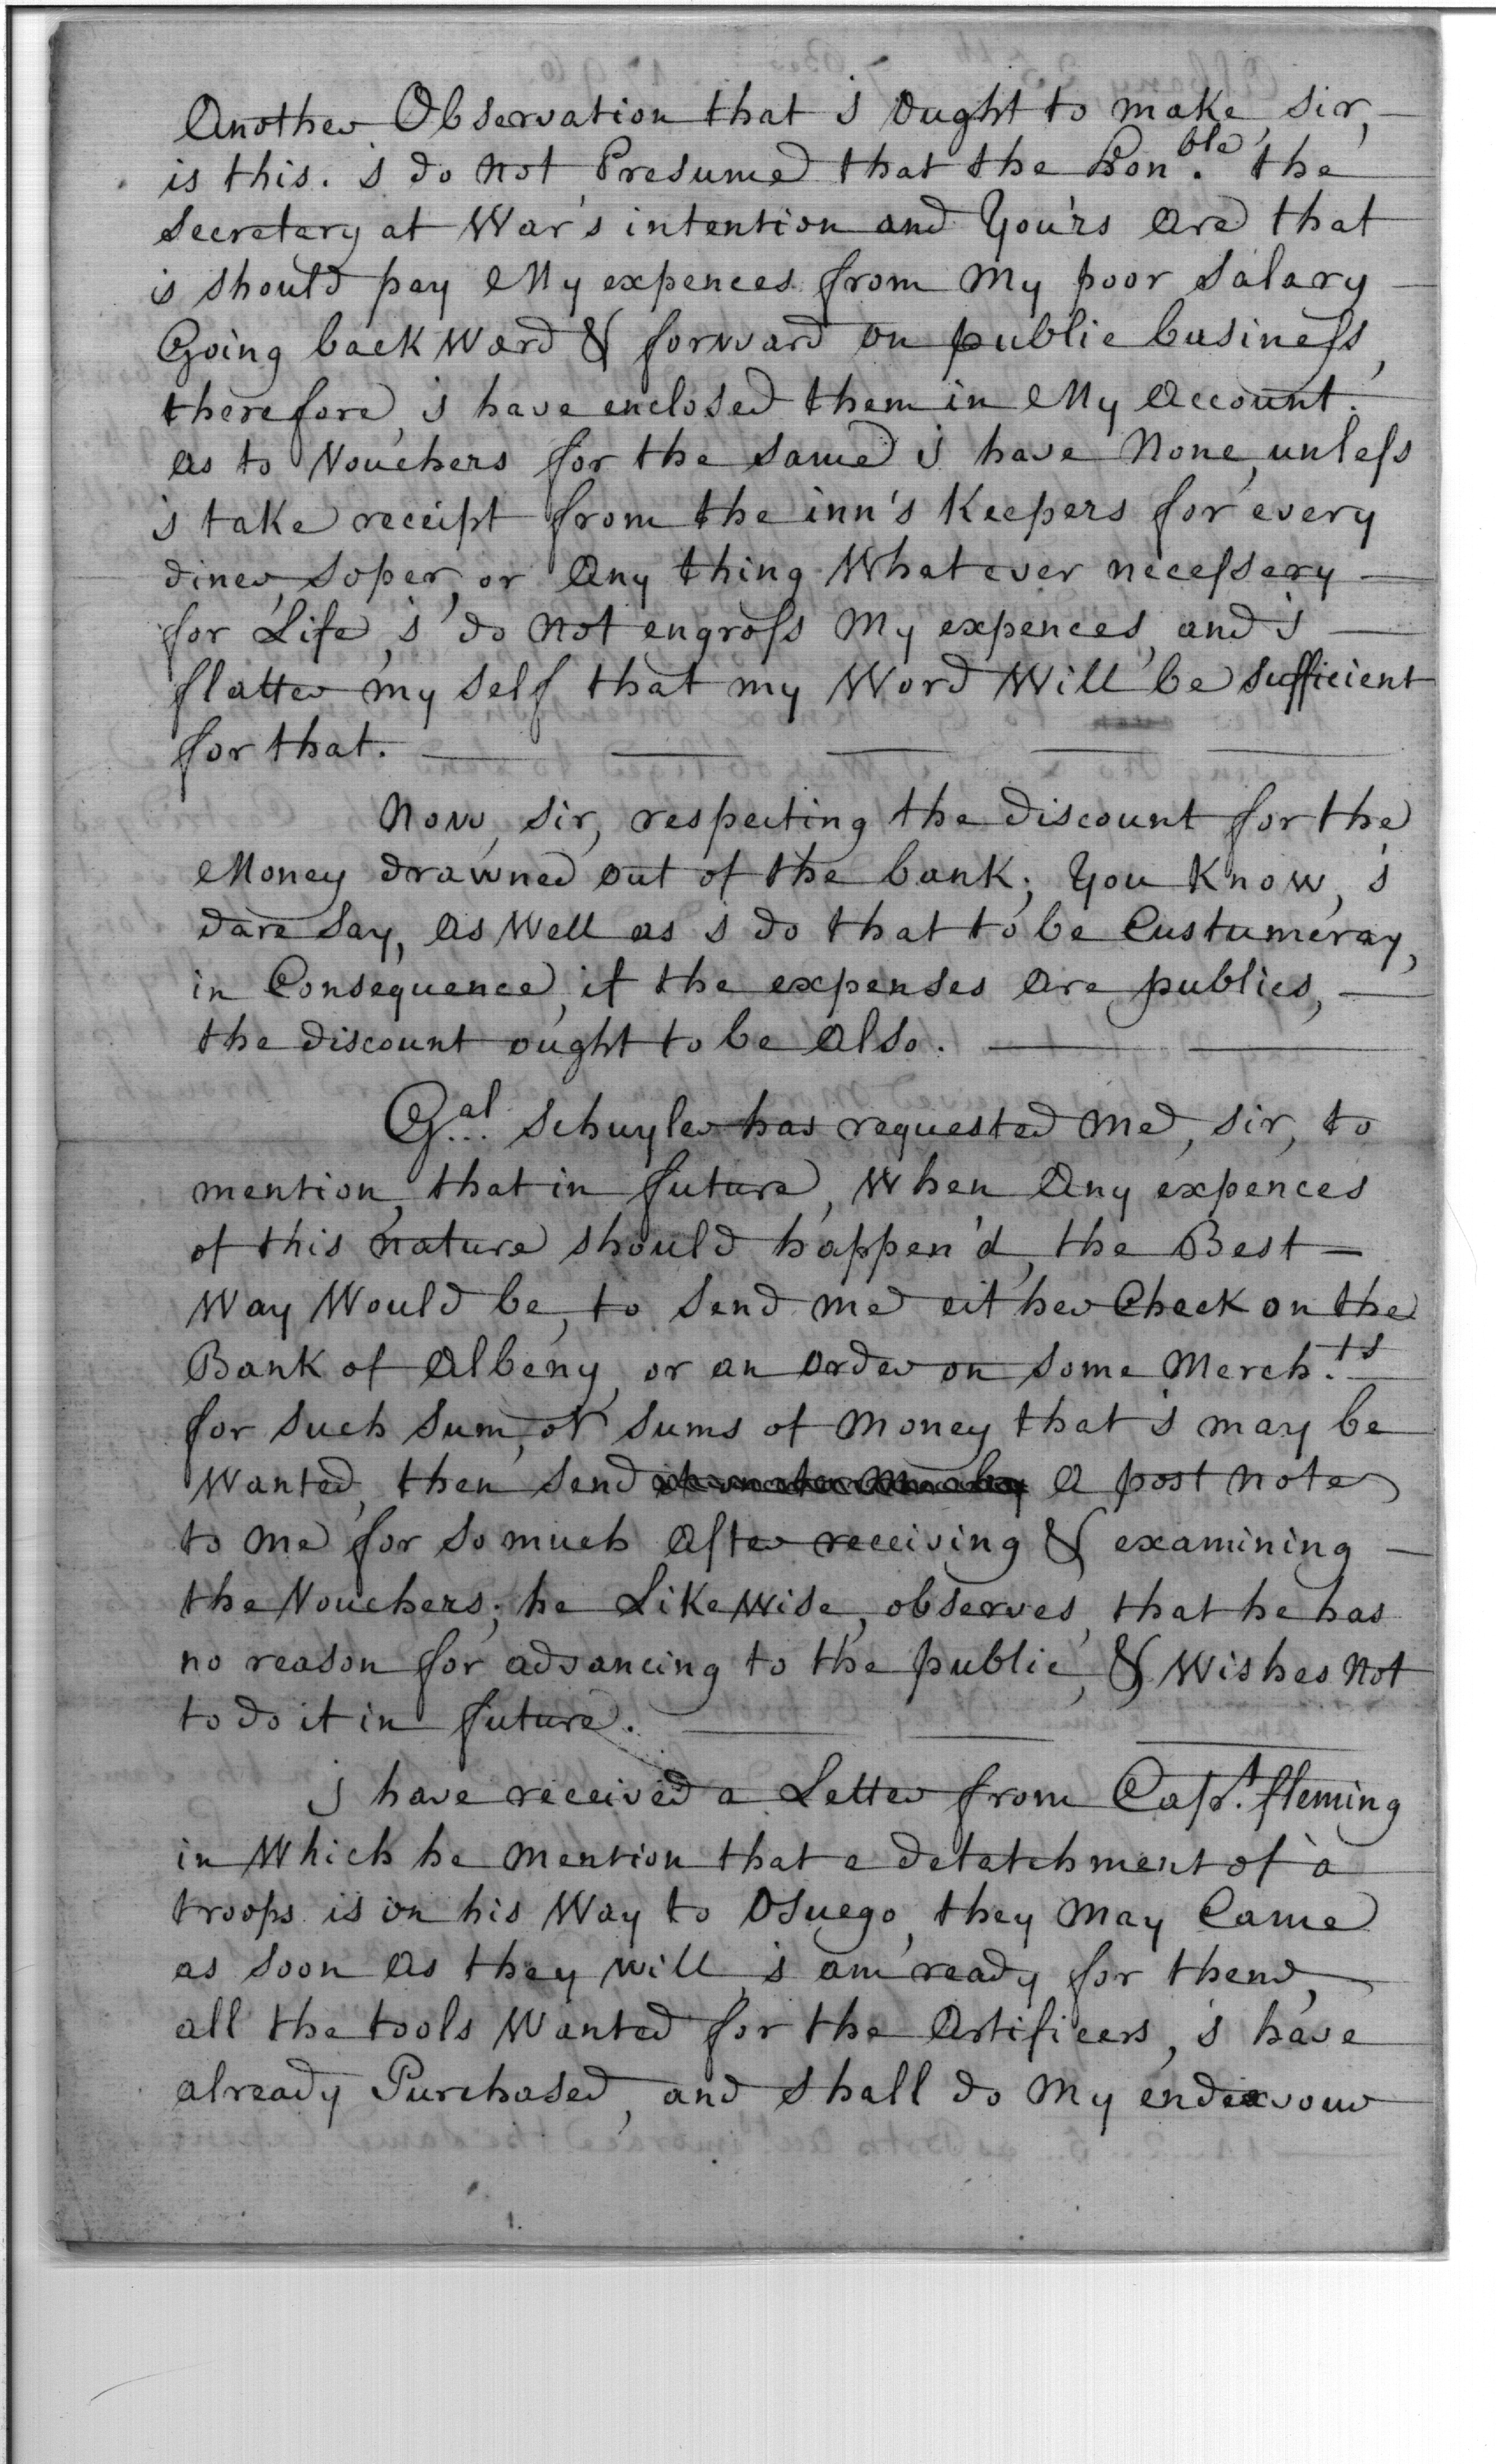 Another Observation that i Ought to make, sir,
is this. i do not Presume that the Hon.ble the
Secretary at War's intention and Your's Are that
i should pay My expences from My poor Salary
Going back Ward & forward on public business,
therefore, i have enclosed them in My Account.
as to Vouchers for the same i have None, unless
i take receipt from the inn's Keepers for every
diner, soper, or Any thing Whatever necessary
for Life, i do not engross My expences, and i
flatter my self that my Word Will be sufficient
for that.
Now, sir, respecting the discount for the
Money drawned out of the bank; You Know, i
dare say, as Well as i do that to be Custumeray,
in Consequence, if the expenses Are publics,
the discount ought to be Also.
G...al Schuyler has requested me, sir, to
mention, that in future, When Any expences
of this nature should happen'd, the Best
Way Would be, to send me either Check on the
Bank of Albeny, or an Order on some Merch.ts
for such sum, or sums of Money that i may be
Wanted, then send A post note
to me for so much After receiving & examining
the Vouchers; he LikeWise, observes, that he has
no reason for advancing to the public, & Wishes Not
to do it in future.
j have received a Letter from Capt. fleming
in Which he Mention that a detatchment of a
troops is on his Way to Osuego, they May Came
as soon As they will, i am ready for them,
all the tools Wanted for the Artificers, i have
already Purchased, and shall do My endeavour